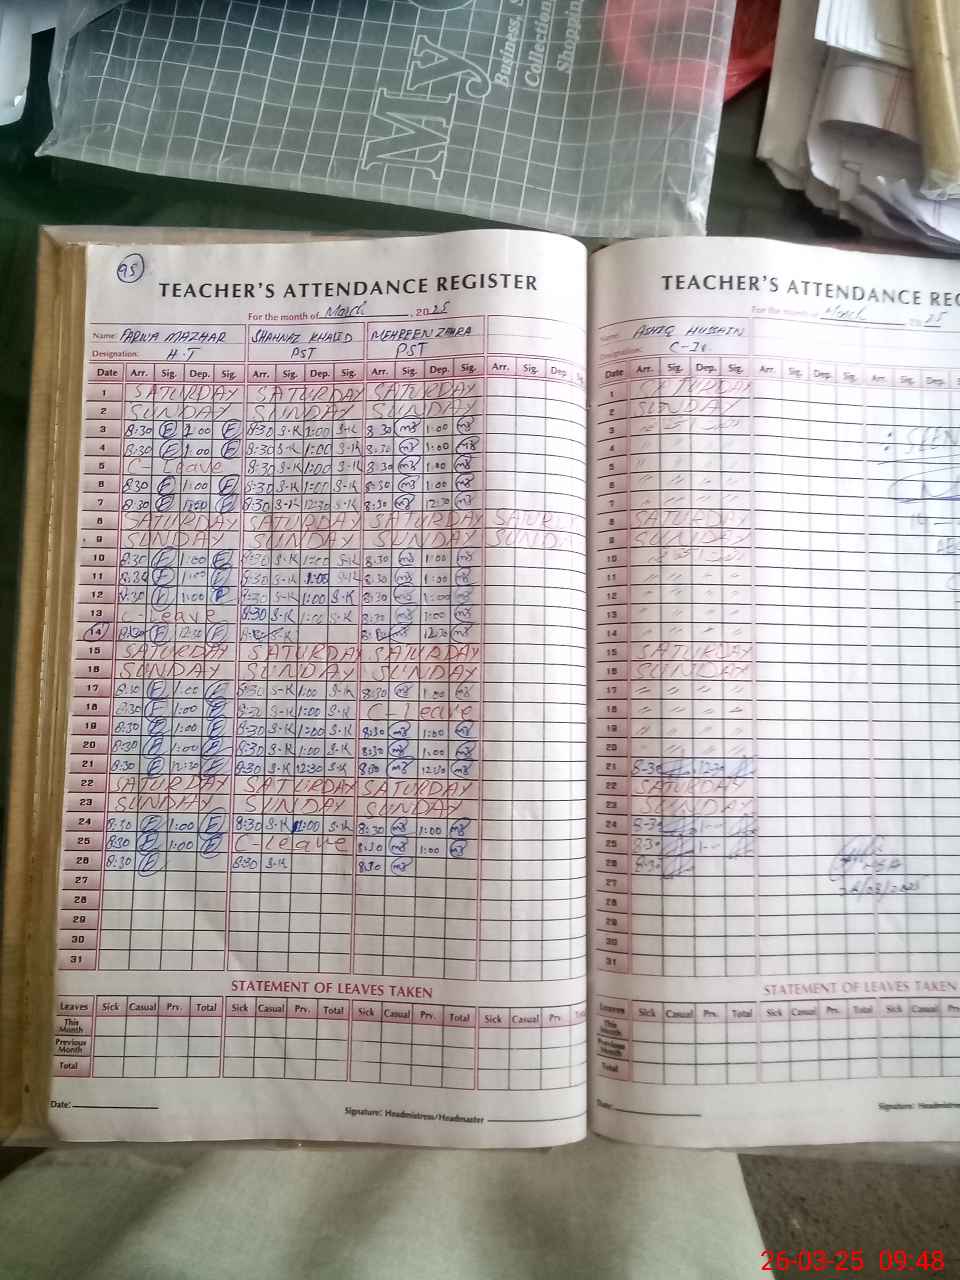 My
Business, S
Collection
Shopping
95
TEACHER'S ATTENDANCE REGISTER
For the month of March, 2025
Name: FARWA MAZHAR SHAHNAZ KHALID MEHREEN ZAHRA
Designation: H.T PST PST
Date Arr. Sig. Dep. Sig. Arr. Sig. Dep. Sig. Arr. Sig. Dep. Sig. Arr. Sig. Dep. Sig.
1 SATURDAY SATURDAY SATURDAY
2 SUNDAY SUNDAY SUNDAY
3 8:30 F 1:00 F 8:30 S-K 1:00 S-K 8:30 mz 1:00 mz
4 8:30 F 1:00 F 8:30 S-K 1:00 S-K 8:30 mz 1:00 mz
5 C-Leave 8:30 S-K 1:00 S-K 8:30 mz 1:00 mz
6 8:30 F 1:00 F 8:30 S-K 1:00 S-K 8:30 mz 1:00 mz
7 8:30 F 8:30 S-K 12:30 S-K 8:30 mz 12:30 mz
8 SATURDAY SATURDAY SATURDAY SATURDAY
9 SUNDAY SUNDAY SUNDAY SUNDAY
10 8:30 F 1:00 F 8:30 S-K 1:00 S-K 8:30 mz 1:00 mz
11 8:30 F 1:00 F 8:30 S-K 1:00 S-K 8:30 mz 1:00 mz
12 8:30 F 1:00 F 8:30 S-K 1:00 S-K 8:30 mz 1:00 mz
13 C-Leave 8:30 S-K 1:00 S-K 8:30 mz 1:00 mz
14 8:30 F 12:30 F S-K 12:30 mz
15 SATURDAY SATURDAY SATURDAY
16 SUNDAY SUNDAY SUNDAY
17 8:30 F 1:00 F 8:30 S-K 1:00 S-K 8:30 mz 1:00 mz
18 8:30 F 1:00 F 8:30 S-K 1:00 S-K C-Leave
19 8:30 F 1:00 F 8:30 S-K 1:00 S-K 8:30 mz 1:00 mz
20 8:30 F 1:00 F 8:30 S-K 1:00 S-K 8:30 mz 1:00 mz
21 8:30 F 12:30 F 8:30 S-K 12:30 S-K 8:30 mz 12:30 mz
22 SATURDAY SATURDAY SATURDAY
23 SUNDAY SUNDAY SUNDAY
24 8:30 F 1:00 F 8:30 S-K 1:00 S-K 8:30 mz 1:00 mz
25 8:30 F 1:00 F C-Leave 8:30 mz 1:00 mz
26 8:30 F 8:30 S-K 8:30 mz
27
28
29
30
31
STATEMENT OF LEAVES TAKEN
Leaves Sick Casual Prv. Total Sick Casual Prv. Total Sick Casual Prv. Total Sick Casual Prv.
This Month
Previous Month
Total
Date:
Signature: Headmistress/Headmaster
TEACHER'S ATTENDANCE REG
For the month of March 2025
Name: ASHIQ HUSSAIN
Designation:
Date Arr. Sig. Dep. Sig. Arr. Sig. Dep. Sig. Arr. Sig. Dep.
1 SATURDAY
2 SUNDAY
3
4 〃 〃 〃 〃
5 〃 〃 〃 〃
6 〃 〃 〃 〃
7 〃 〃 〃 〃
8 SATURDAY
9 SUNDAY
10
11 〃 〃 〃 〃
12 〃 〃 〃 〃
13 〃 〃 〃 〃
14 〃 〃 〃 〃
15 SATURDAY
16 SUNDAY
17 〃 〃 〃 〃
18 〃 〃 〃 〃
19 〃 〃 〃 〃
20 〃 〃 〃 〃
21 8:30 12:30
22 SATURDAY
23 SUNDAY
24 8:30
25 8:30
26 8:30
27
28
29
30
31
STATEMENT OF LEAVES TAKEN
Leaves Sick Casual Prv. Total Sick Casual Prv. Total Sick Casual
This Month
Previous Month
Total
Date:
Signature: Headmistress
26-03-25 09:48